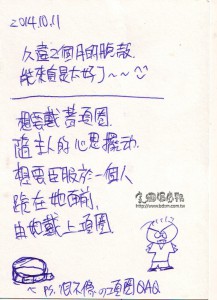 2014.10.11
久違2個月的脫殼
能來自是太好了~~
想要戴著項圈
隨主人的心思擺动
想要臣服於一個人
跪在她面前,
由她戴上項圈
http://www.bdsm.com.tw
ps.很不像的項圈QAQ